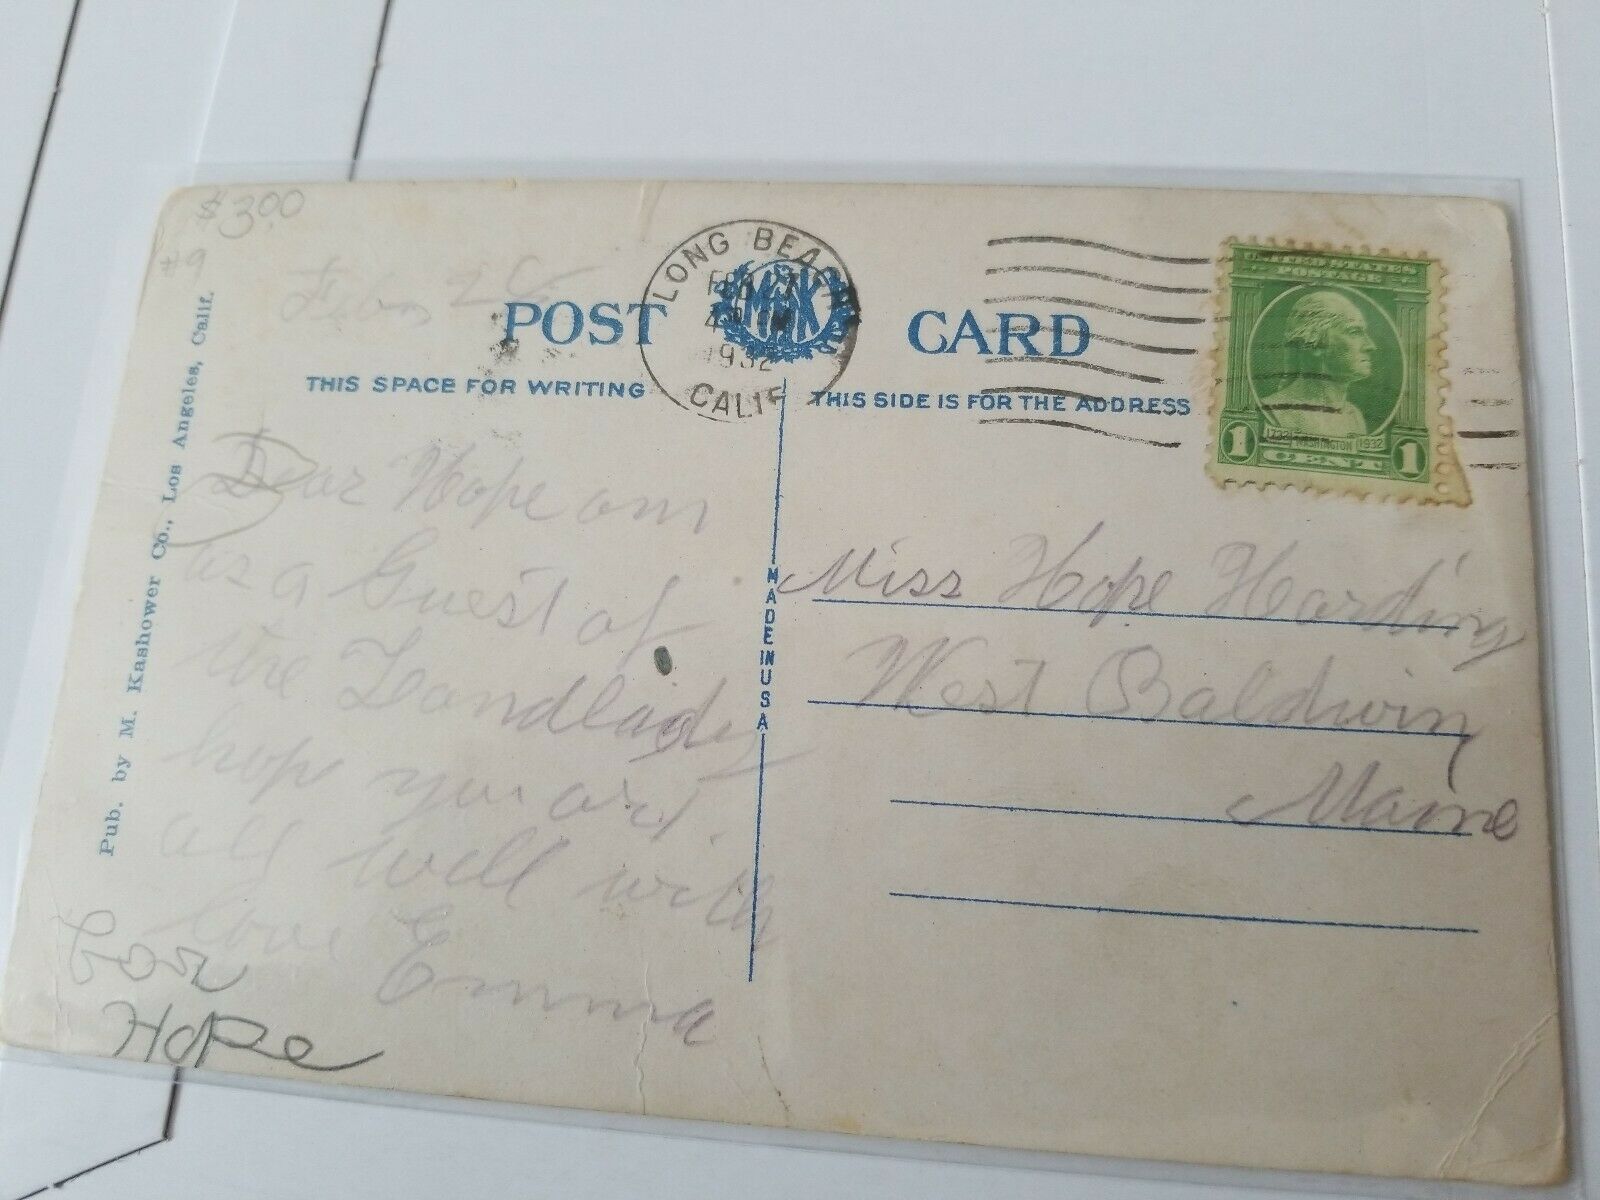 $3.00
#9
POST CARD
MKK
LONG BEACH
FEB 27
4 PM
1932
CALIF
UNITED STATES
POSTAGE
1732 WASHINGTON 1932
1 CENT 1
THIS SPACE FOR WRITING
THIS SIDE IS FOR THE ADDRESS
Pub. by M. Kashower Co., Los Angeles, Calif.
MADE IN USA
Dear Hope am
as a Guest of
the Landlady
hope you are
all well with
love Emma
for
Hope
Miss Hope Harding
West Baldwin
Maine